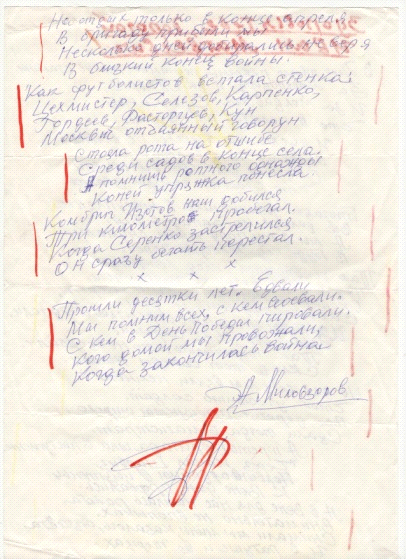 только в конце апреля
В бригаду прибыли мы
Несколько дней не веря
В близкий конец войны.
Как футболистов встала стенка:
Цехмистер, Селезов, Карпенко,
Гордеев, Фасторцев, Кун
Москвы отчаянный говорун
Стояла рота на отшибе
Среди садов в конце села.
А помнишь ротного однажды
Коней упряжка понесла.
Комбриг Изотов наш добился
Три километров пробегал.
Когда Серенко застрелился
Он сразу бегать перестал.
х х х
Прошли десятки лет. Едвали
Мы помним всех, с кем воевали.
С кем в День Победы пировали,
Кого домой мы провожали,
Когда закончилась война
А. Миловзоров